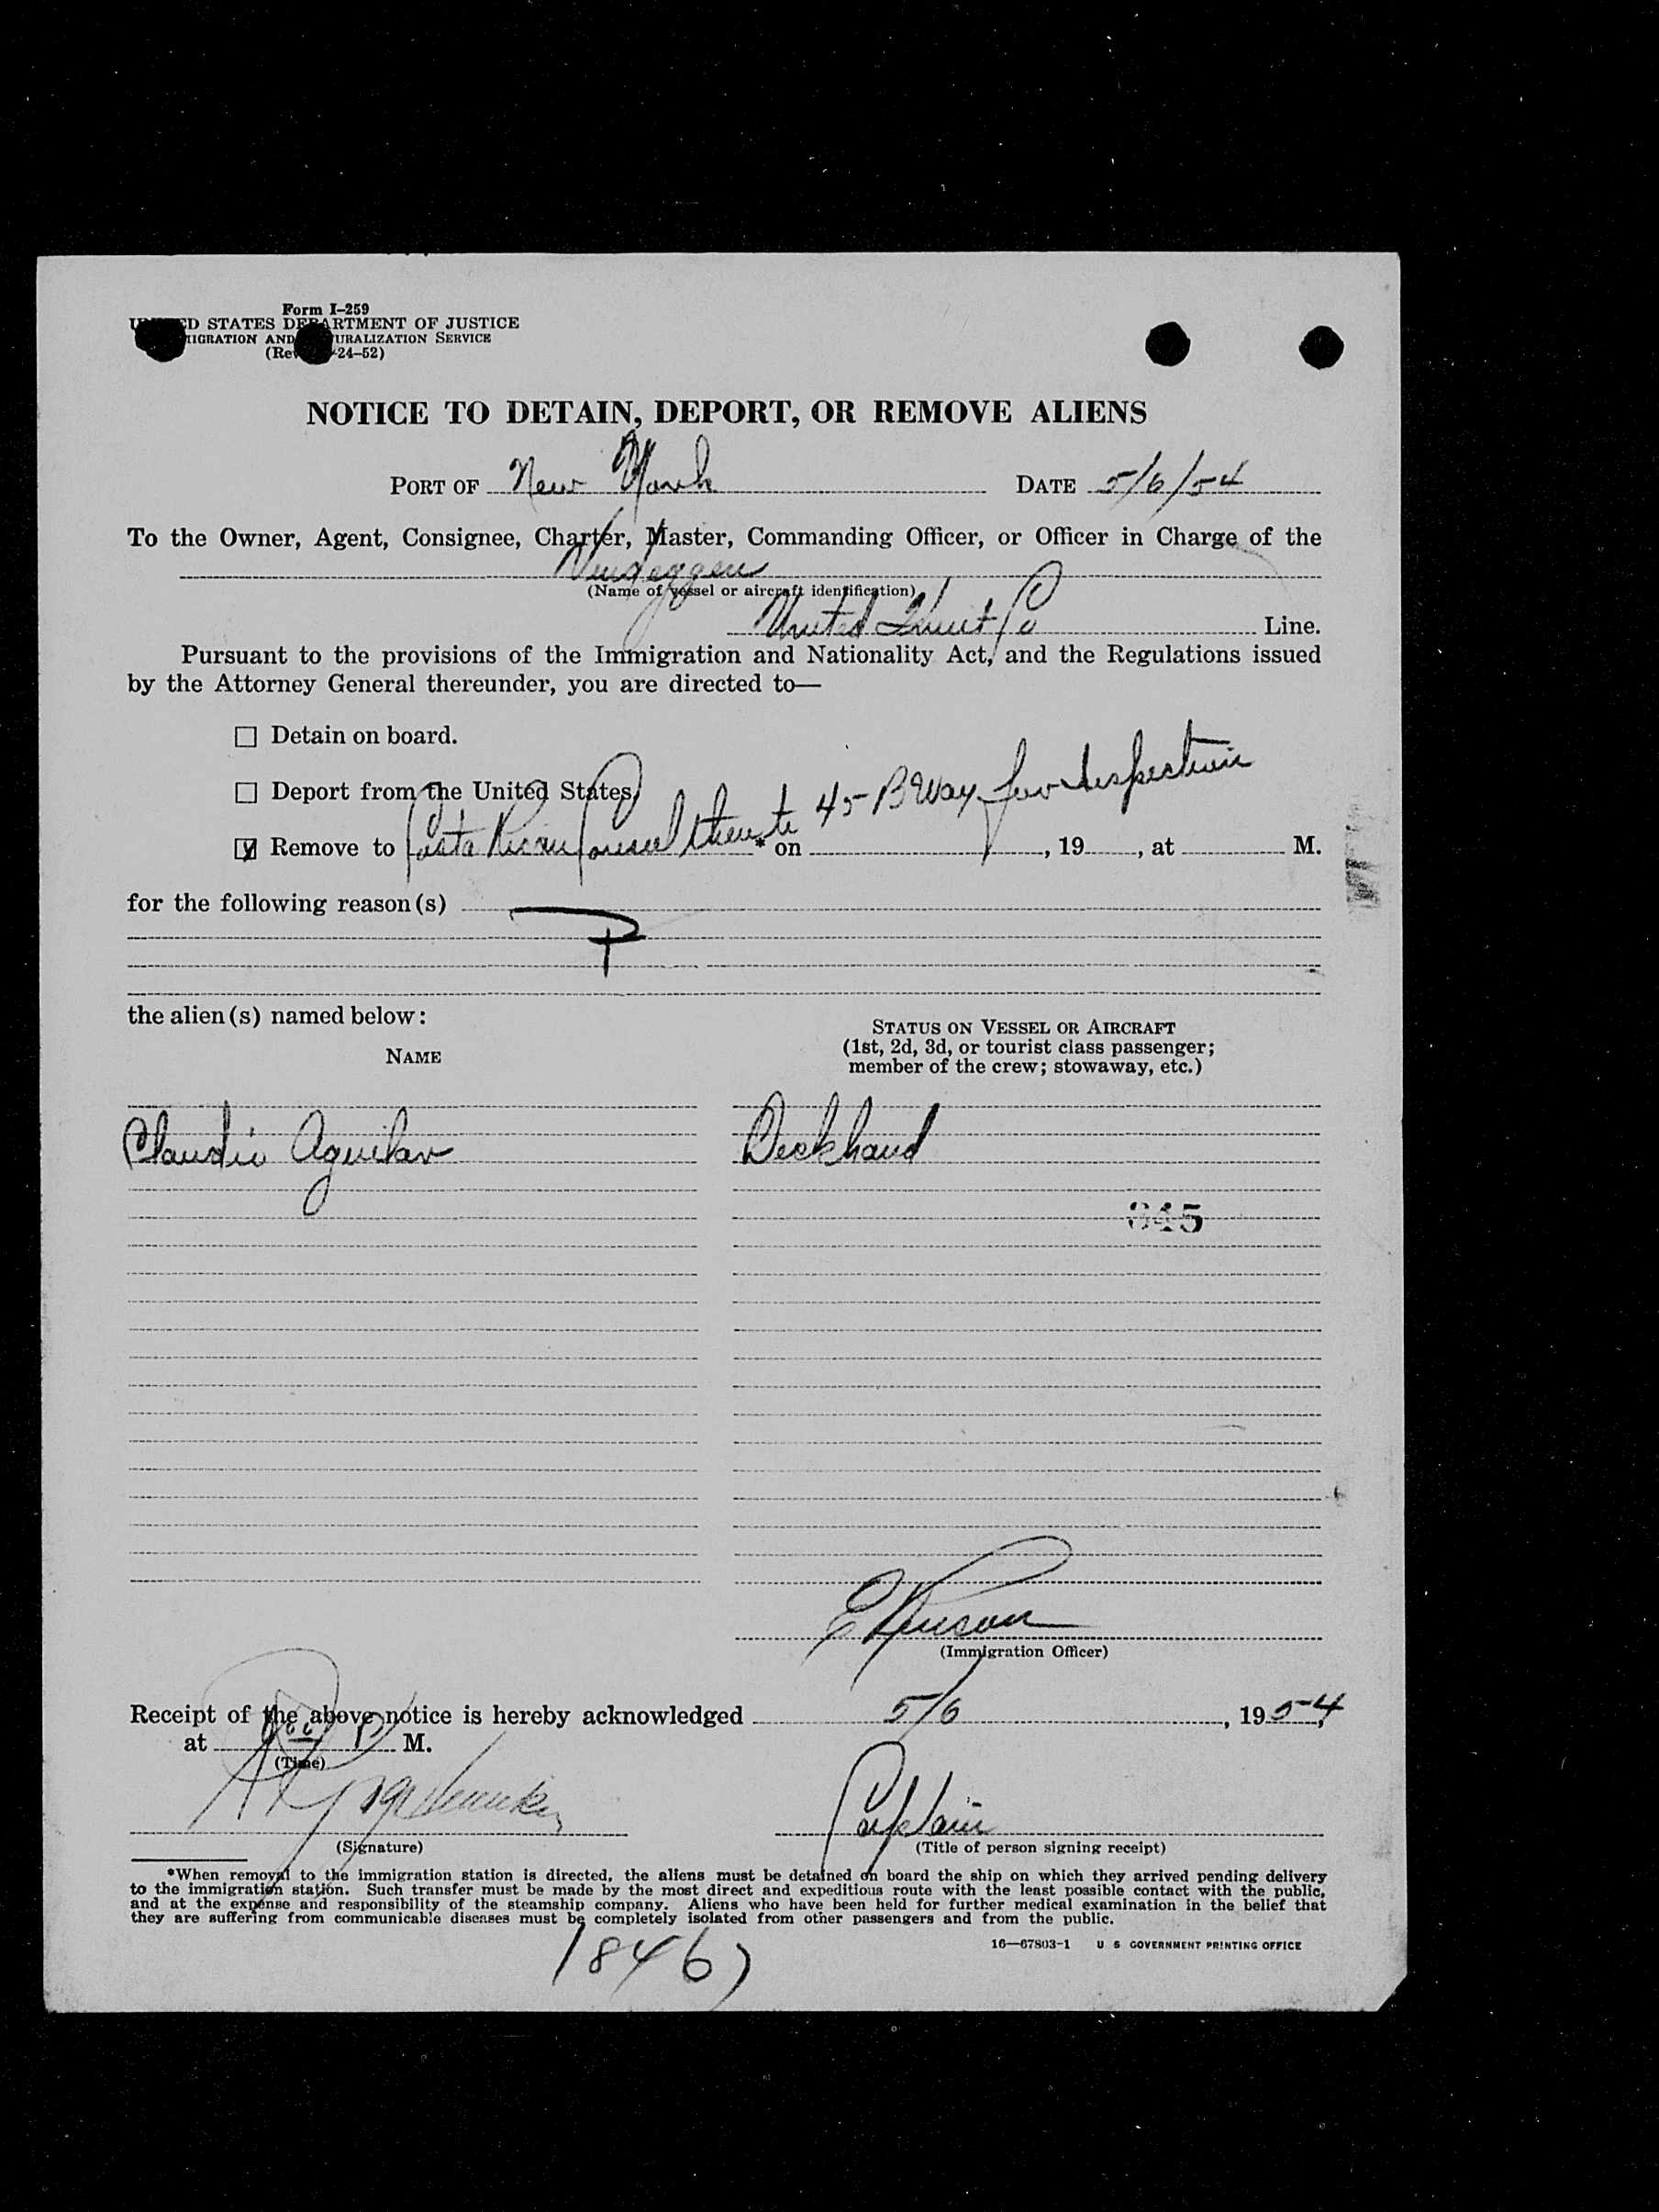 Form I–259
D STATES DEPARTMENT OF JUSTICE
IGRATION AND URALIZATION SERVICE
24–52)
NOTICE TO DETAIN, DEPORT, OR REMOVE ALIENS
PORT OF New York DATE 5/6/54
To the Owner, Agent, Consignee, Charter, Master, Commanding Officer, or Officer in Charge of the
Vindeggen
(Name of vessel or aircraft identification)
United Fruit Co Line.
Pursuant to the provisions of the Immigration and Nationality Act, and the Regulations issued
by the Attorney General thereunder, you are directed to—
☐ Detain on board.
☐ Deport from the United States.
☑ Remove to Costa Rican Consul then to 45 BWay for Inspection * on , 19 , at M.
for the following reason(s)
P
the alien(s) named below:
NAME
STATUS ON VESSEL OR AIRCRAFT
(1st, 2d, 3d, or tourist class passenger;
member of the crew; stowaway, etc.)
Claudio Aguilar Deckhand
345
(Immigration Officer)
Receipt of the above notice is hereby acknowledged 5/6, 1954,
at P M.
(Time)
Captain
(Signature) (Title of person signing receipt)
*When removal to the immigration station is directed, the aliens must be detained on board the ship on which they arrived pending delivery
to the immigration station. Such transfer must be made by the most direct and expeditious route with the least possible contact with the public,
and at the expense and responsibility of the steamship company. Aliens who have been held for further medical examination in the belief that
they are suffering from communicable diseases must be completely isolated from other passengers and from the public.
16—67803-1 U S GOVERNMENT PRINTING OFFICE
18467